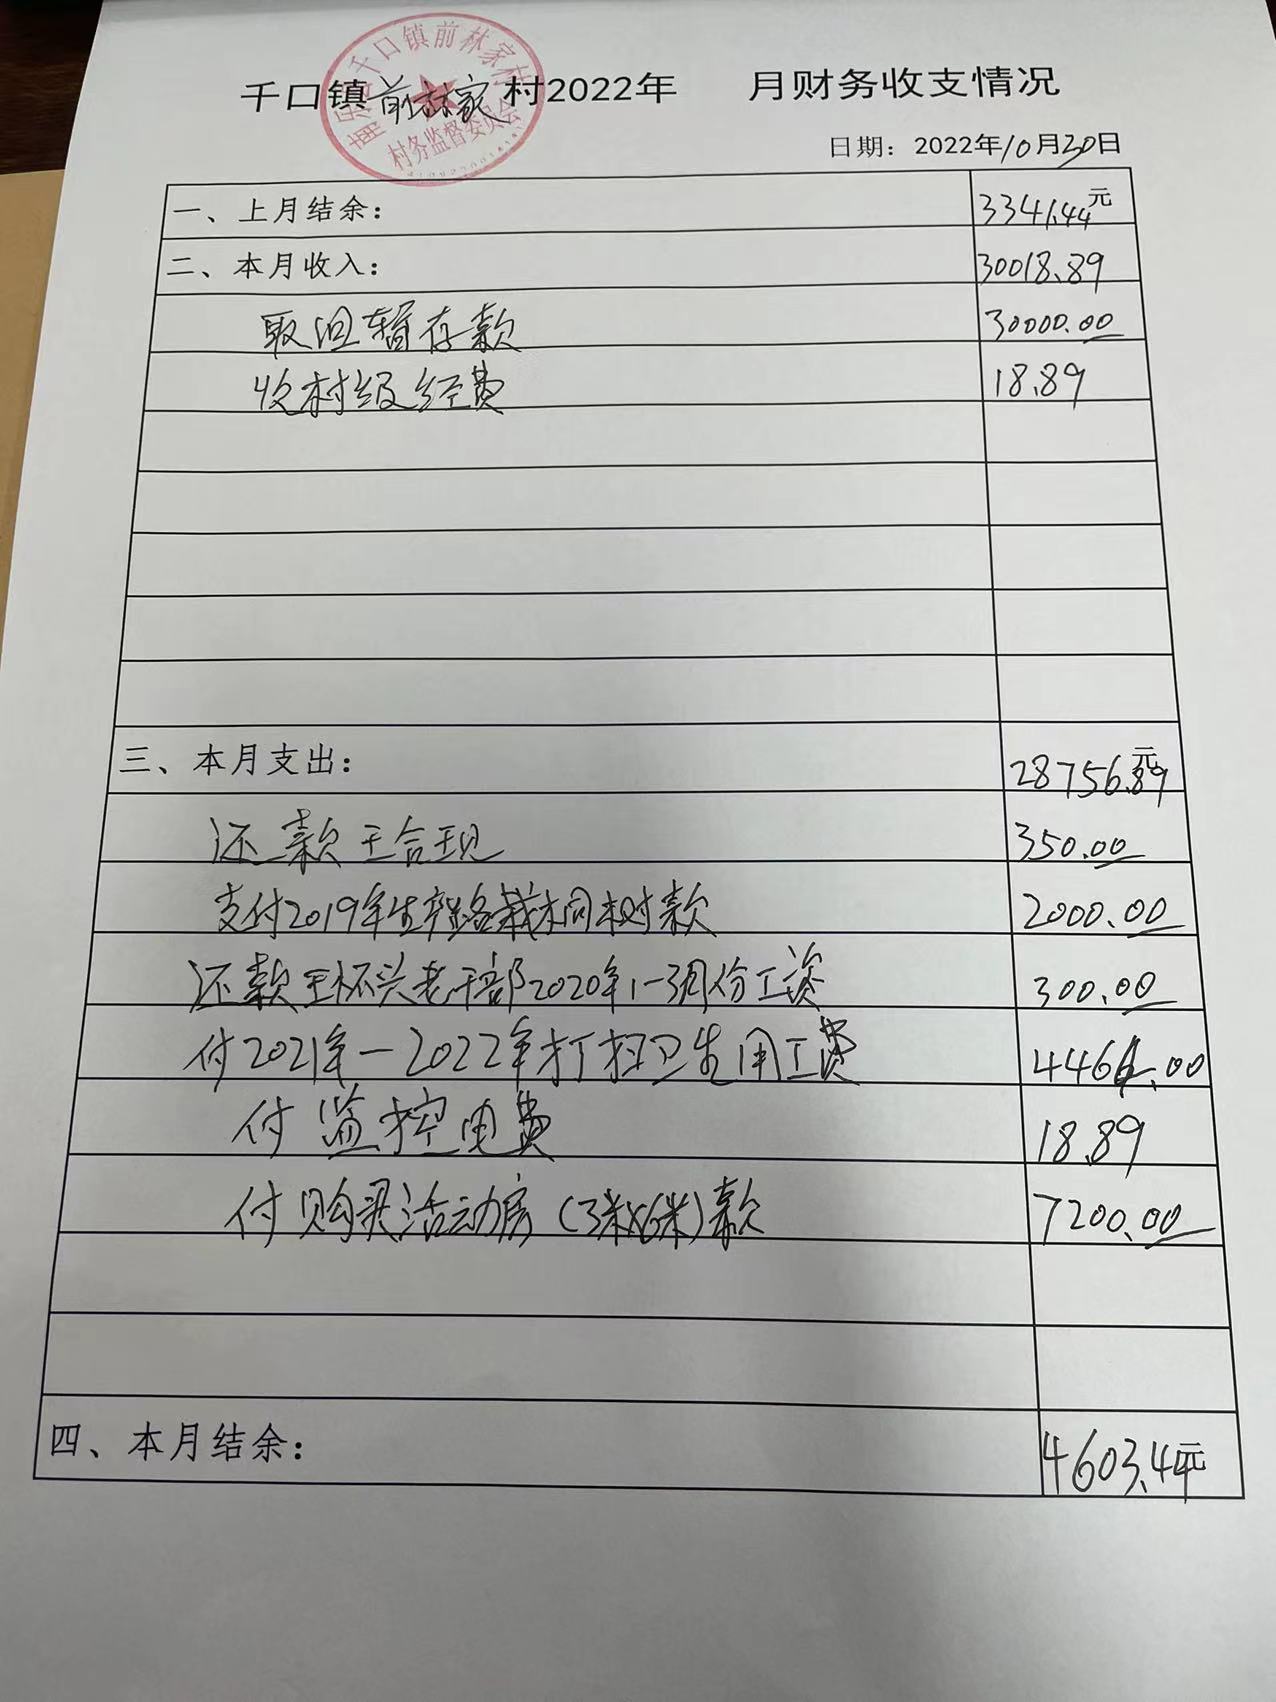 千口镇前林家村2022年 月财务收支情况
千口镇前林家村
村务监督委员会
日期：2022年10月30日
一、上月结余： 3341.44元
二、本月收入： 30018.89
取回暂存款 30000.00
收村级经费 18.89
三、本月支出： 28756.89元
还款王合现 350.00
支付2019年生产路栽梧桐树款 2000.00
还款王怀兴老干部2020年1-3月份工资 300.00
付2021年-2022年打扫卫生用工费
付监控电费 18.89
付购买活动房(3米×6米)款 7200.00
四、本月结余： 4603.44元